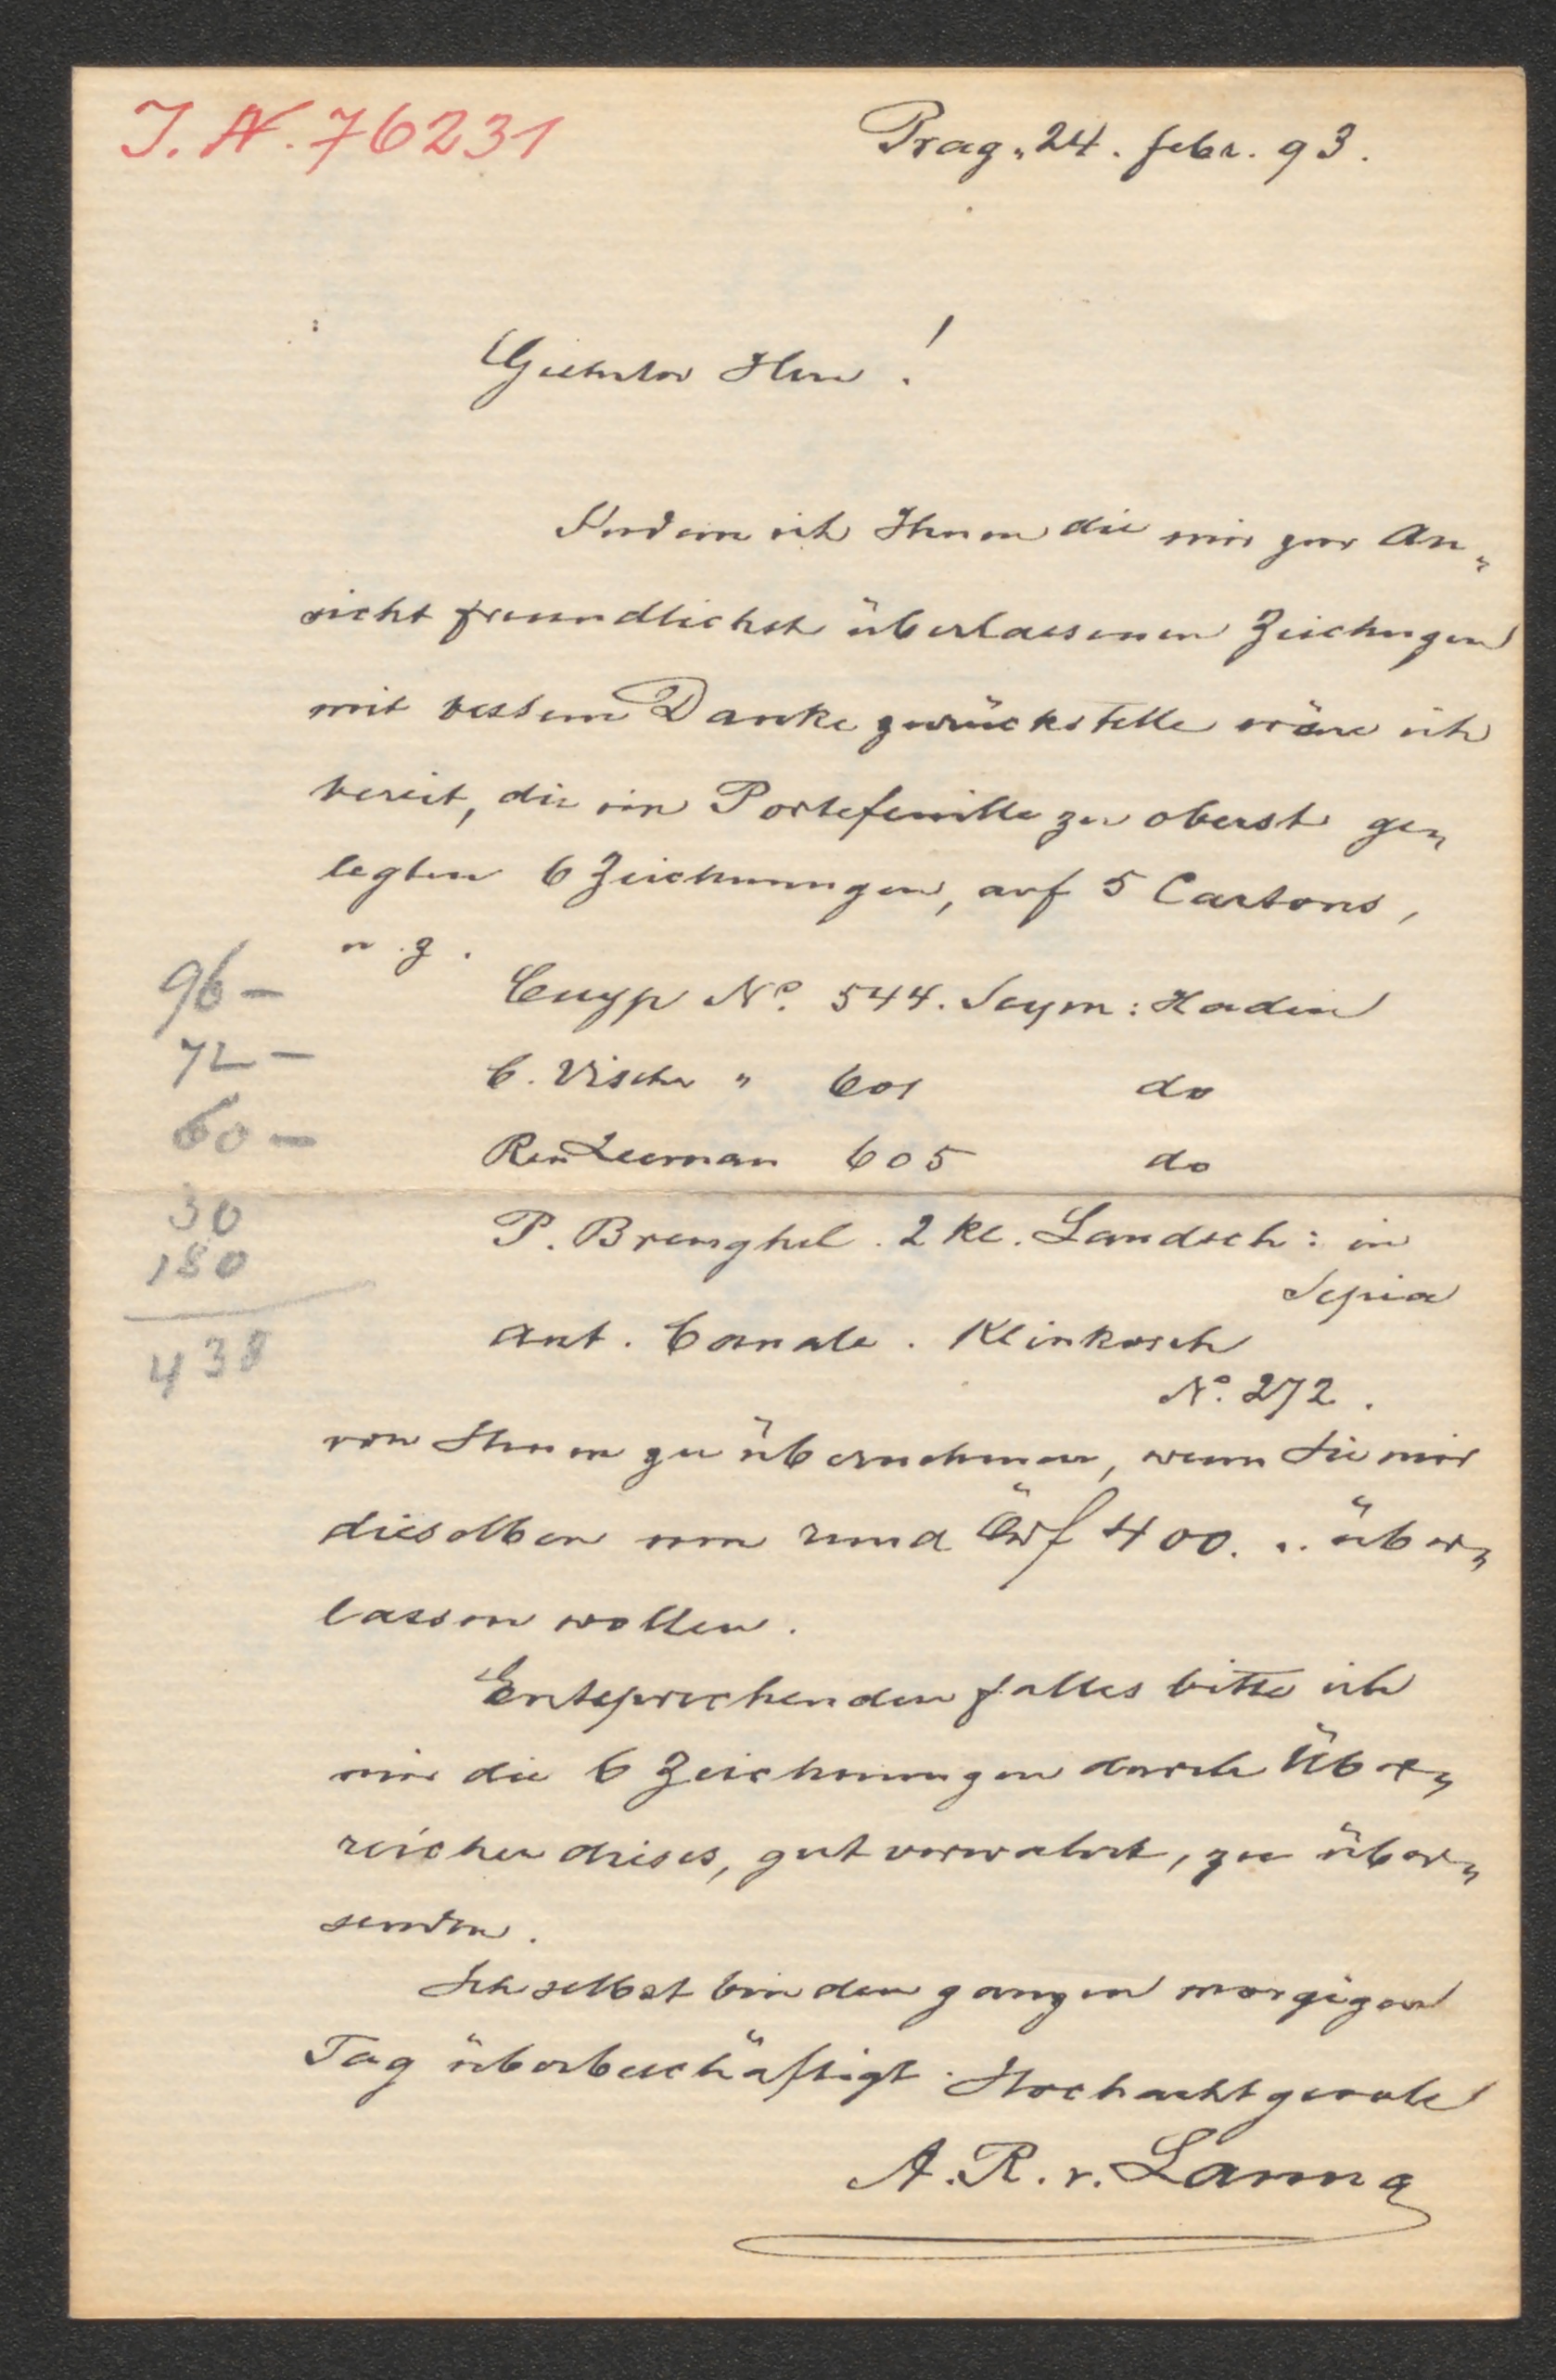 J. N. 76231
Prag, 24. febr. 93.
Geehrter Herr!
Indem ich Ihnen die mir zur An„
sicht freundlichst überlassenen Zeichngen
mit bestem Danke zurückstelle wäre ich
bereit, die im Portefeuille zu oberst ge„
legten 6 Zeichnungen, auf 5 Cartons,
u. z.
96 —
Cuyp No. 544. Seym: Haden
72 —
C. Vischer " 601 do
60 —
Zeeman 605 do
30
P. Breughel. 2 kl. Landsch: in
Sepia
180
Ant. Canale. Klinkosch
438
No. 272.
von Ihnen zu übernehmen, wenn Sie mir
dieselben um rund Öwf 400. „ über„
lassen wollen.
Entsprechenden falles bitte ich
mir die 6 Zeichnungen durch Über„
reicher dieses, gut verwahrt, zu über„
senden.
Ich selbst bin den ganzen morgigen
Tag überbeschäftigt. Hochachtgsvoll
A. R. v. Lanna